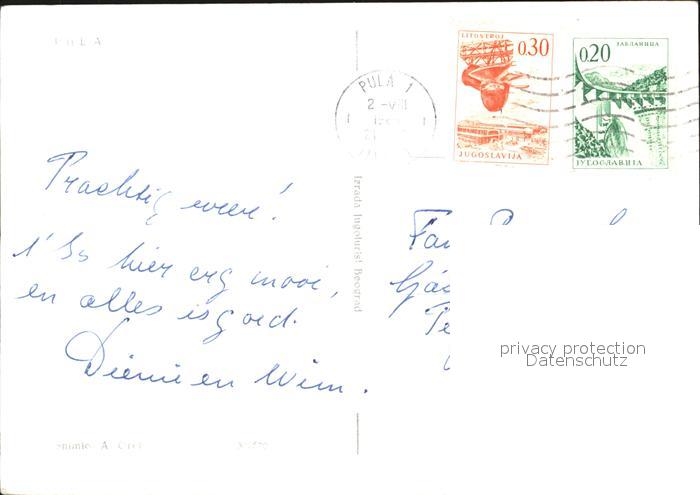 PULA
LITOSTROJ
0.30
JUGOSLAVIJA
ЈАБЛАНИЦА
0.20
ЈУГОСЛАВИЈА
PULA 1
2 -VIII
Prachtig weer!
't Is hier erg mooi,
en alles is goed.
Dieni en Wim.
Izrada Jugoturist Beograd
Fa
privacy protection
Datenschutz
Snimio A.